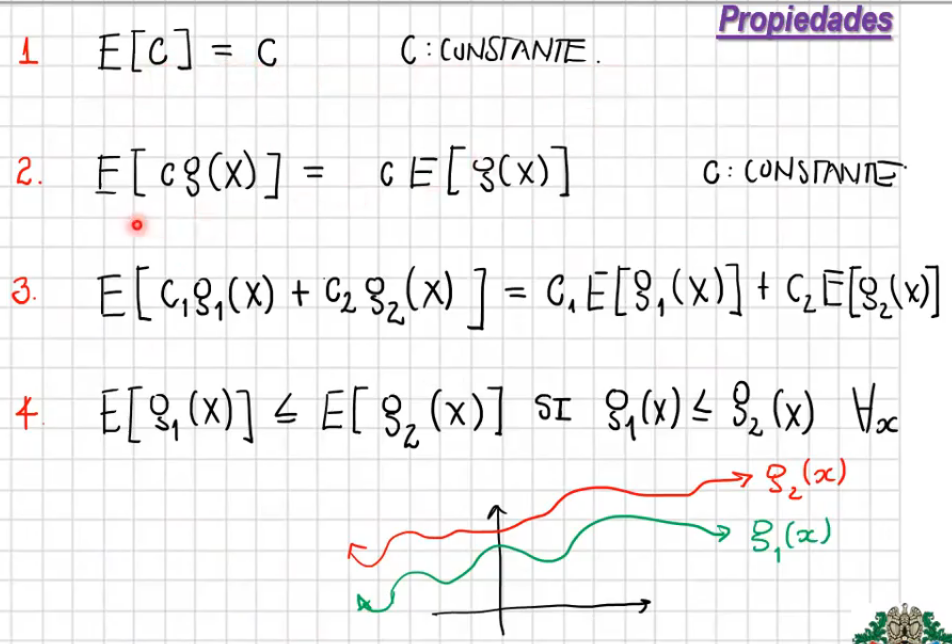 Propiedades
1 E[C] = C C: CONSTANTE.
2. E[cg(X)] = c E[g(X)] C: CONSTANTE.
3. E[C₁g₁(X) + C₂g₂(X)] = C₁E[g₁(X)] + C₂E[g₂(X)]
4. E[g₁(X)] ≤ E[g₂(X)] SI g₁(X) ≤ g₂(X) ∀x
g₂(x)
g₁(x)